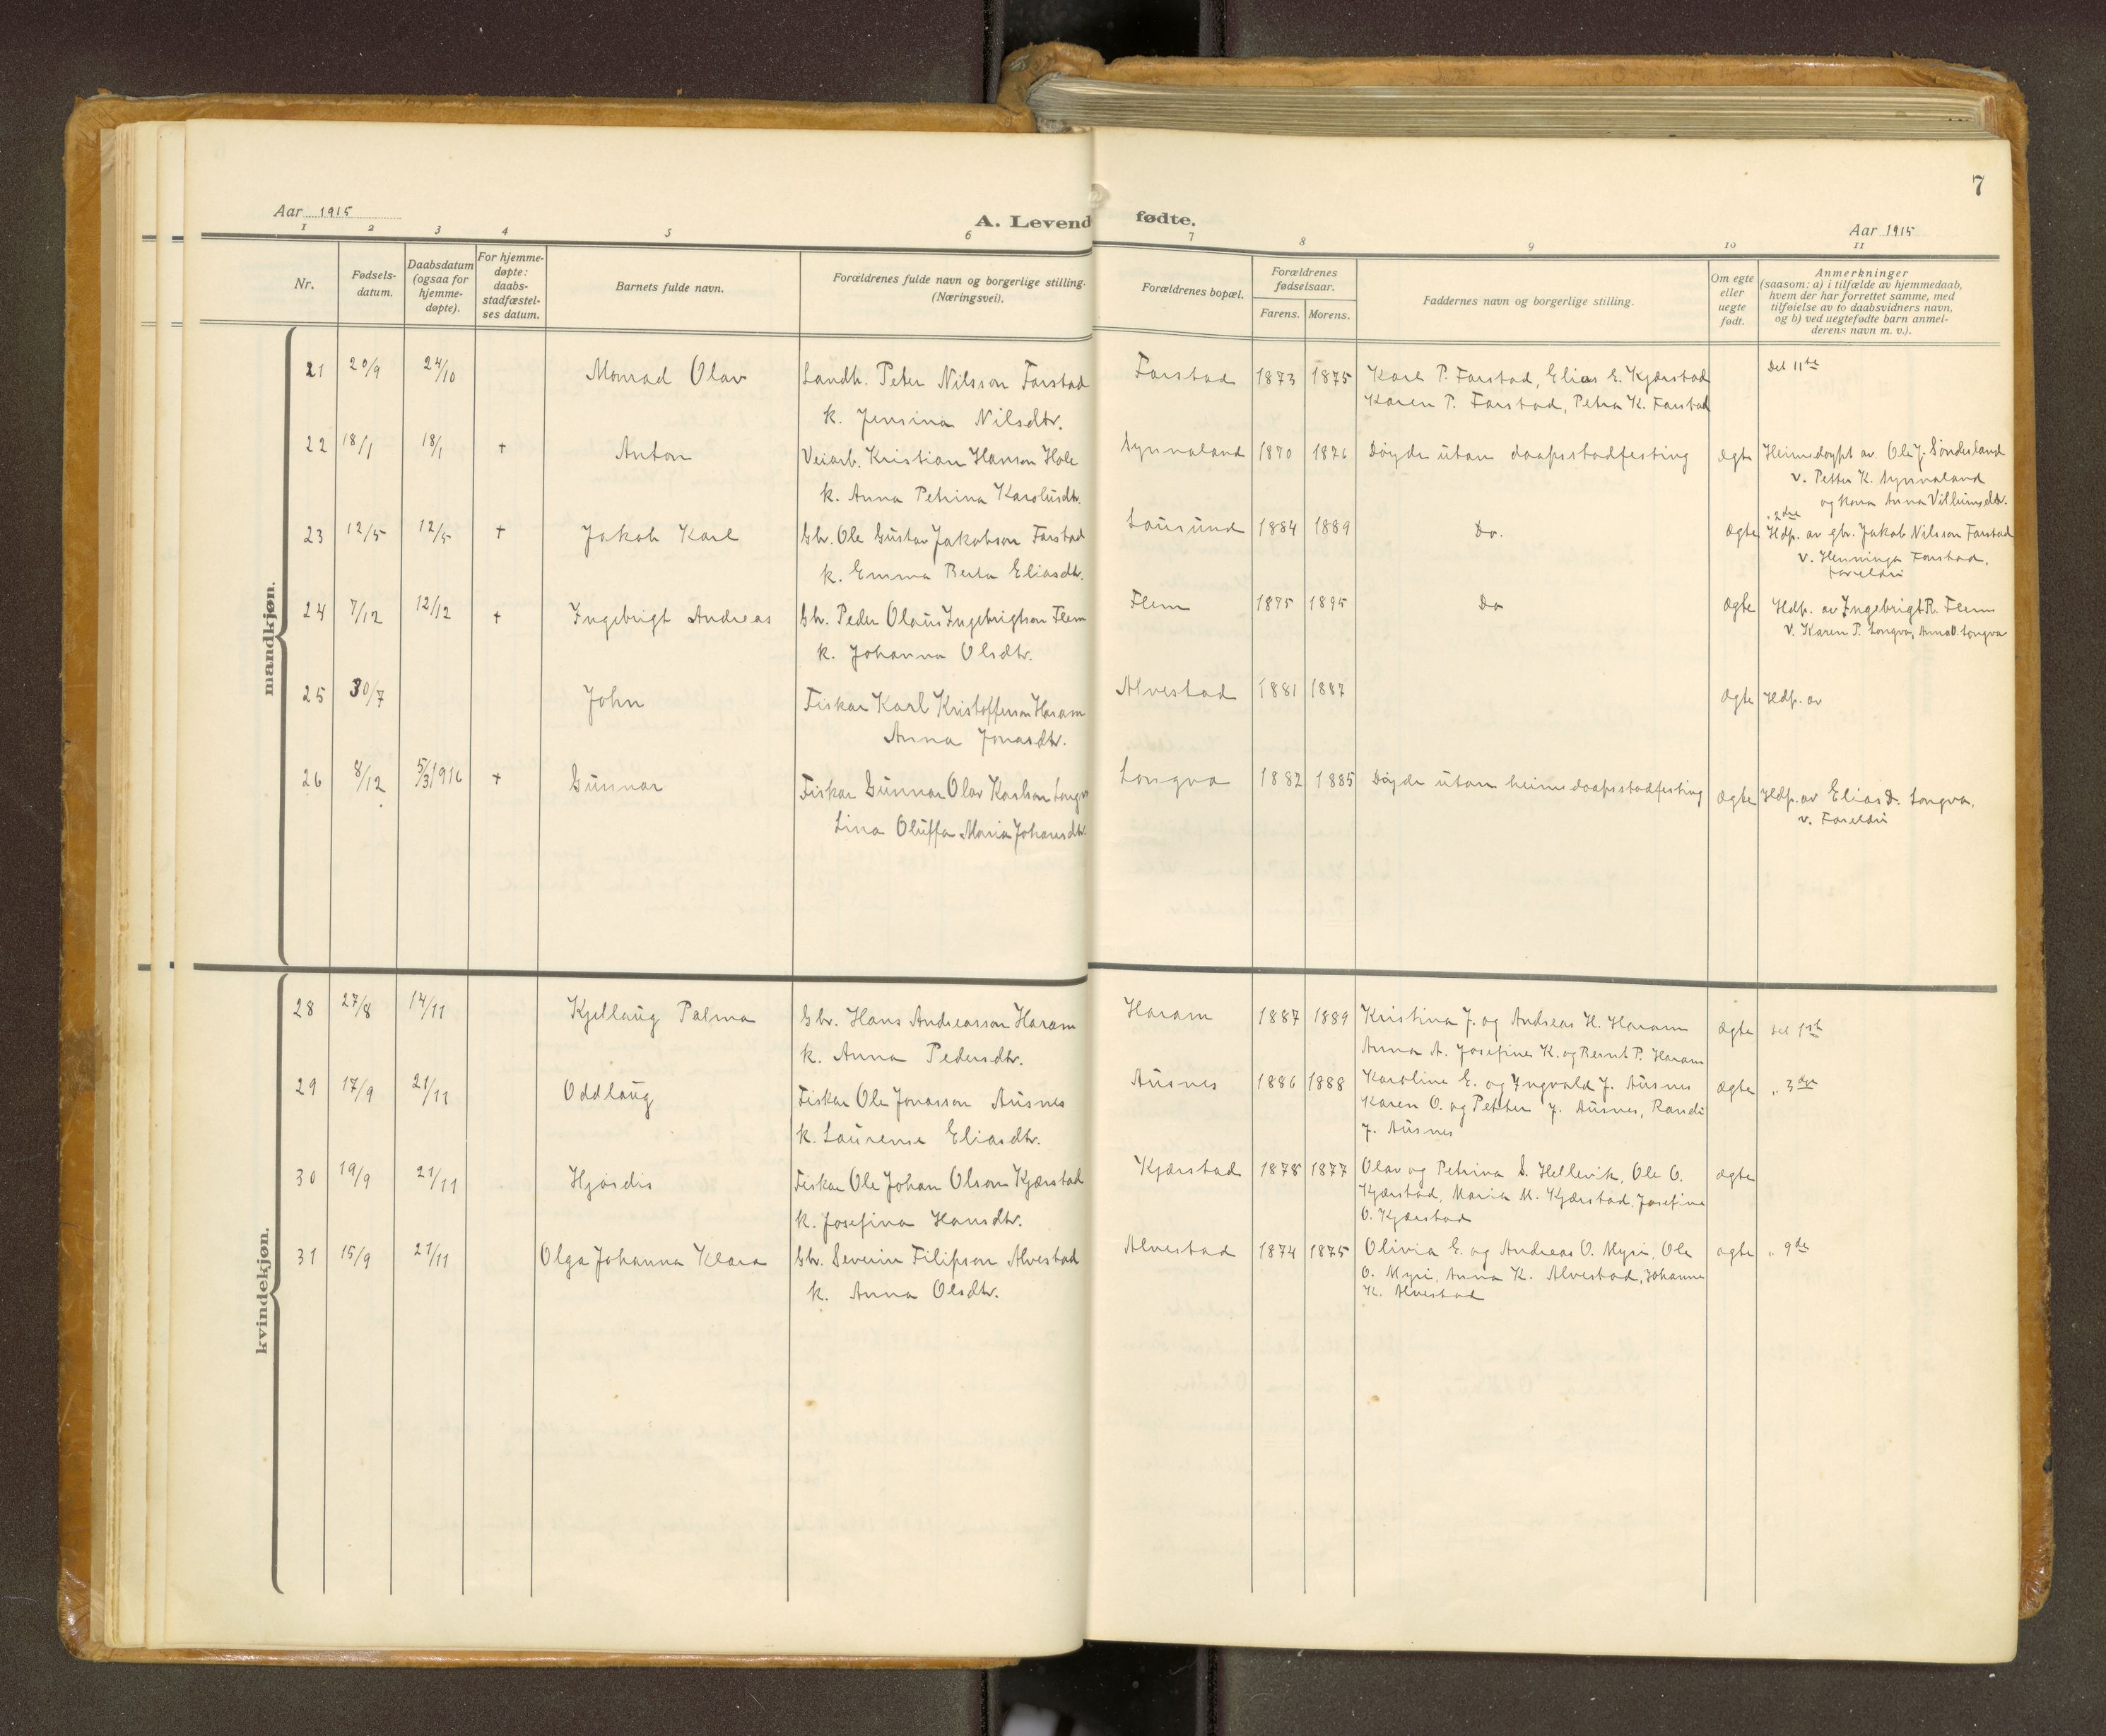 7
Aar 1915
A. Levend fødte.
Aar 1915
1 2 3 4 5 6 7 8 9 10 11
Nr.
Fødsels-
datum.
Daabsdatum
(ogsaa for
hjemme-
døpte).
For hjemme-
døpte:
daabs-
stadfæstel-
ses datum.
Barnets fulde navn.
Forældrenes fulde navn og borgerlige stilling.
(Næringsvei).
Forældrenes bopæl.
Forældrenes
fødselsaar.
Farens. Morens.
Faddernes navn og borgerlige stilling.
Om egte
eller
uegte
født.
Anmerkninger
(saasom: a) i tilfælde av hjemmedaab,
hvem der har forrettet samme, med
tilføielse av to daabsvidners navn,
og b) ved uegtefødte barn anmel-
derens navn m. v.).
mandkjøn.
21 20/9 24/10 Monrad Olav Landh. Peter Nilsson Farstad Farstad 1873 1875 Karl P. Farstad, Elias E. Kjærstad Del 11te
k. Jensina Nilsdtr. Karen P. Farstad, Petra K. Farstad
22 18/1 18/1 + Anton Veiarb. Kristian Hanson Hole Synnaland 1870 1876 Døyde utan daapsstadfesting ægte Heimedøypt av Ole J. Sønderland
k. Anna Petrina Karolusdtr. v. Petter K. Synnaland
og kona Anna Villumsdtr.
23 12/5 12/5 + Jakob Karl Gbr. Ole Gustav Jakobson Farstad Lausund 1884 1889 Do. ægte „ 2dre Hdp. av gbr. Jakob Nilsson Farstad
k. Emma Berta Eliasdtr. v. Henninga Farstad.
Foreldri
24 7/12 12/12 + Ingebrigt Andreas Gbr. Peder Olaus Ingebrigtson Flem Flem 1875 1895 Do ægte Hdp. av Ingebrigt R. Flem
k. Johanna Olsdtr. v. Karen P. Longva, Anna O. Longva
25 30/7 John Fiskar Karl Kristofferson Haram Alvestad 1881 1887 ægte Hdp. av
Anna Jonasdtr.
26 8/12 5/3 1916 + Gunnar Fiskar Gunnar Olav Karlson Longv Longva 1882 1885 Døyde utan heimedaapsstadfesting ægte Hdp. av Elias D. Longva,
Lina Oluffa Maria Johansdtr. v. Foreldri
kvindekjøn.
28 27/8 14/11 Kjellaug Palma Gbr. Hans Andreasson Haram Haram 1887 1889 Kristina J. og Andreas H. Haram ægte Del 1ste
k. Anna Pedersdtr. Anna A. Josefine K. og Bernt P. Haram
29 17/9 21/11 Oddlaug Fiskar Ole Jonasson Ausnes Ausnes 1886 1888 Karoline E. og Ingvald J. Ausnes ægte „ 3dje
k. Laurense Eliasdtr. Karen O. og Petter J. Ausnes, Randi
J. Ausnes
30 19/9 21/11 Hjørdis Fiskar Ole Johan Olson Kjærstad Kjærstad 1878 1877 Olav og Petrina S. Hellevik, Ole O. ægte
k. Josefina Hansdtr. Kjærstad, Maria M. Kjærstad, Josefine
O. Kjærstad
31 15/9 21/11 Olga Johanna Klara Gbr. Severin Filipson Alvestad Alvestad 1874 1875 Olivia E. og Andreas O. Myri, Ole ægte „ 9de
k. Anna Olsdtr. O. Myri, Anna K. Alvestad, Johanne
K. Alvestad